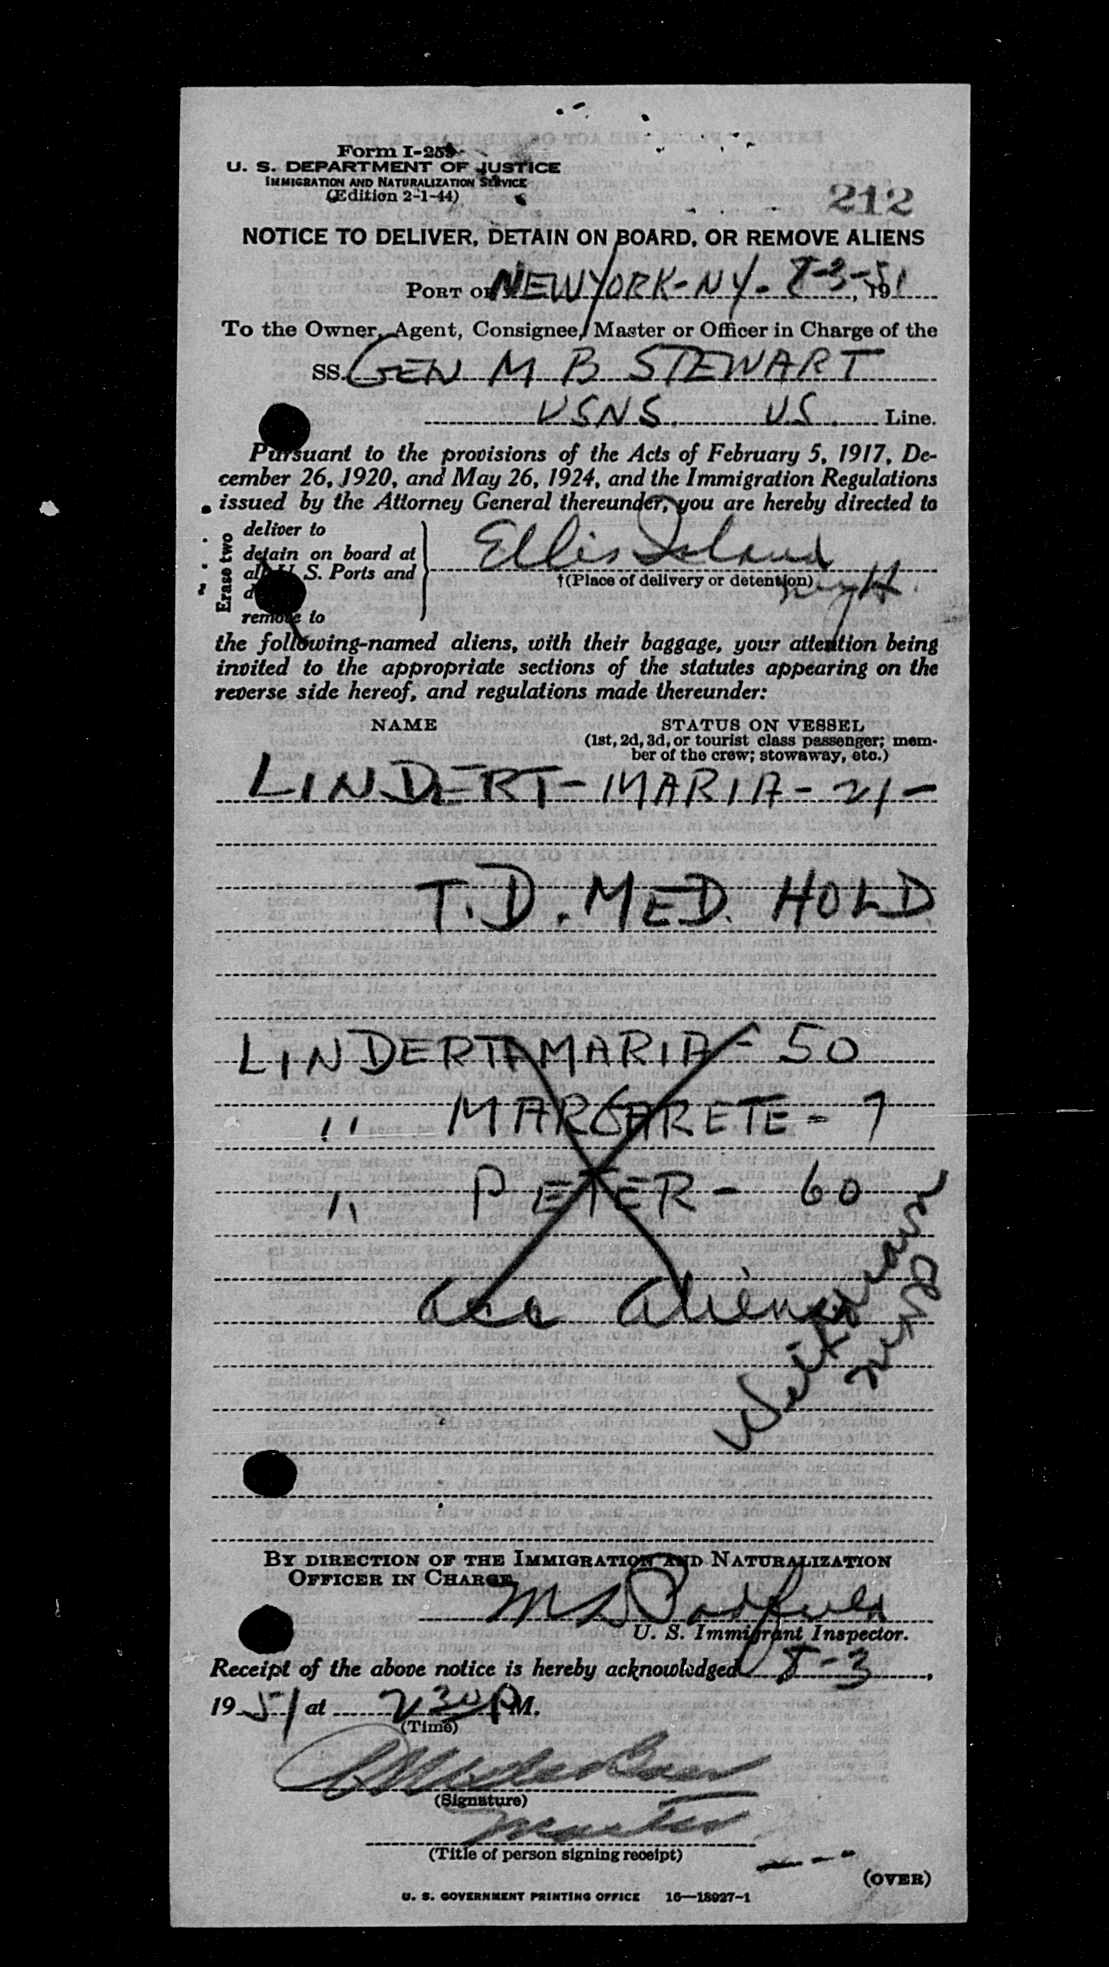 Form I-259
U. S. DEPARTMENT OF JUSTICE
IMMIGRATION AND NATURALIZATION SERVICE
(Edition 2-1-44)
212
NOTICE TO DELIVER, DETAIN ON BOARD, OR REMOVE ALIENS
PORT OF NEW YORK - NY. 8-3-51, 19
To the Owner, Agent, Consignee, Master or Officer in Charge of the
SS. GEN M B STEWART
USNS. US. Line.
Pursuant to the provisions of the Acts of February 5, 1917, De-
cember 26, 1920, and May 26, 1924, and the Immigration Regulations
issued by the Attorney General thereunder, you are hereby directed to
Erase two
deliver to
detain on board at
all U. S. Ports and
remove to
Ellis Island
†(Place of delivery or detention)
nyH.
the following-named aliens, with their baggage, your attention being
invited to the appropriate sections of the statutes appearing on the
reverse side hereof, and regulations made thereunder:
NAME STATUS ON VESSEL
(1st, 2d, 3d, or tourist class passenger; mem-
ber of the crew; stowaway, etc.)
LINDERT - MARIA - 21 -
T.D. MED. HOLD
LINDERT MARIA - 50
" MARGARETE - 7
" PETER - 60
acc alien
BY DIRECTION OF THE IMMIGRATION AND NATURALIZATION
OFFICER IN CHARGE
U. S. Immigrant Inspector.
Receipt of the above notice is hereby acknowledged 8-3,
1951 at 2 30 P M.
(Time)
(Signature)
Master
(Title of person signing receipt)
(OVER)
U. S. GOVERNMENT PRINTING OFFICE 16—18927-1